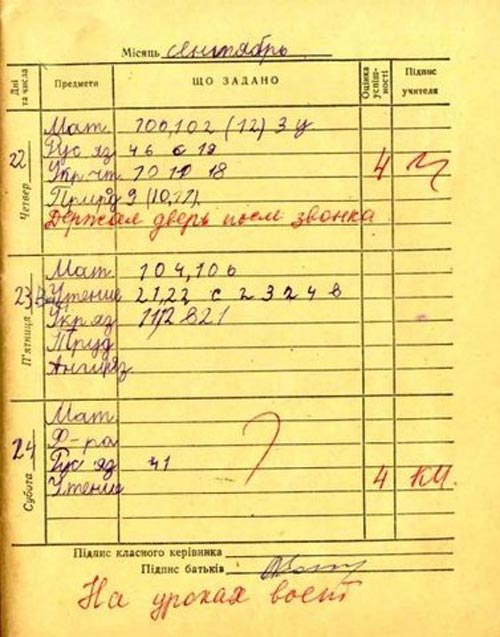 Місяць сентябрь
Дні та числа Предмети ЩО ЗАДАНО Оцінка успіш- ності Підпис учителя
22 Четвер
Мат. 100,102 (12) 3 у
Рус яз 46 с 19
Укр. чт 10 18 4
Прирд 9 (10,11).
Держал дверь после звонка
23 П'ятниця
Мат. 104,106
Чтение 21,22 с 23 24 в
Укр яз
Труд
Англ яз
24 Субота
Мат.
Ф-ра ?
Рус яз 41
Чтение 4 КМ.
Підпис класного керівника
Підпис батьків
На уроках воет